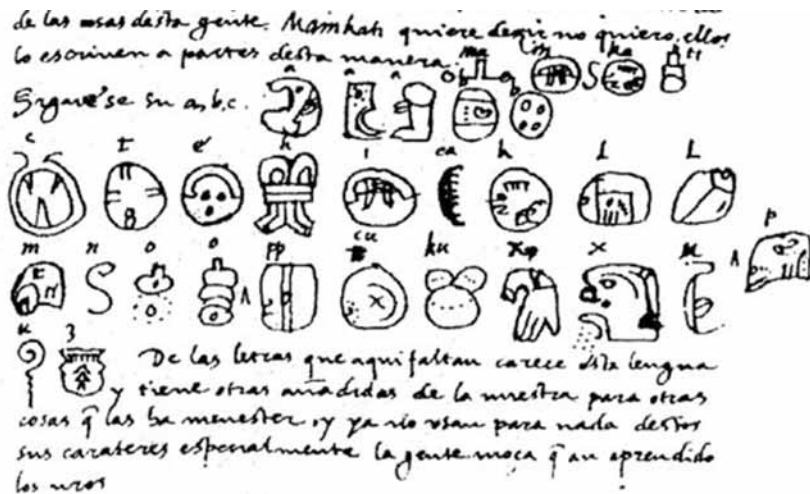 de las cosas desta gente. Mainkati quiere dezir no quiero, ellos
lo escriven a partes desta manera.
ma i n ka ti
Siguese su a, b, c.
a a a b b
c t e h i ca k l L
m n o o pp cu ku x x u p
u z
De las letras que aqui faltan carece esta lengua
y tiene otras añadidas de la nuestra para otras
cosas q̃ las ha menester, y ya no usan para nada destos
sus carateres especialmente la gente moça q̃ an aprendido
los nros